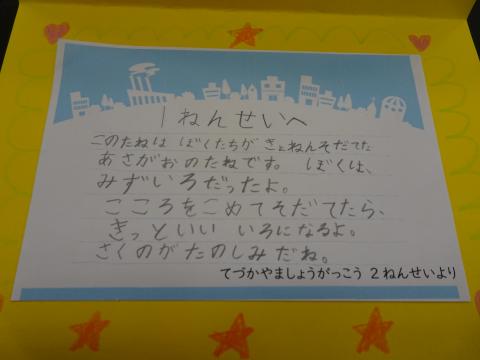 1ねんせいへ
このたねは ぼくたちが きょねんそだてた
あさがおのたねです。 ぼくは、
みずいろだったよ。
こころをこめてそだてたら、
きっといい いろになるよ。
さくのがたのしみだね。
てづかやましょうがっこう 2ねんせいより